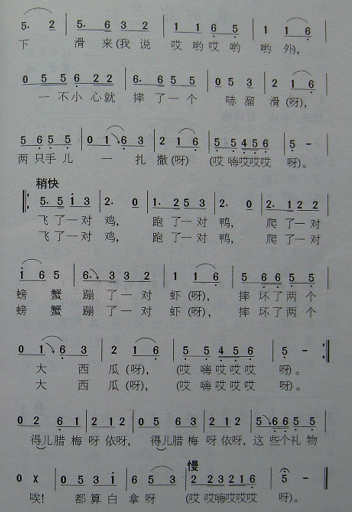 5. 2 | 5. 6 3 2 | 5. 5 5 5 | 2 1 1 6 |
下 滑 来(我 说 哎 哟 哎 哟 哟 外)。
0 5 5 6 2 2 | 6. 6 5 5 | 0 5 3 | 2 1 6 |
一 不 小 心 就 摔 了 一 个 哧 溜 滑(呀),
5 6 5 5 | 0 1 6 3 | 2 1 6 | 5 5 4 5 6 | 5 - |
两 只 手 儿 一 扎 撒(呀) (哎 嗨 哎 哎 哎 呀)。
稍快
5. 5 i 3 | 2. 0 | 1. 2 5 3 | 2. 0 | 2. 1 2 2 |
飞 了 一 对 鸡, 跑 了 一 对 鸭, 爬 了 一 对
飞 了 一 对 鸡, 跑 了 一 对 鸭, 爬 了 一 对
i 6 5 | 6. 3 3 2 | 1 1 6 | 5 6 6 5 5 |
螃 蟹 蹦 了 一 对 虾(呀), 摔 坏 了 两 个
螃 蟹 蹦 了 一 对 虾(呀), 摔 坏 了 两 个
0 1 6 3 | 2 1 6 | 5 5 4 5 6 | 5 - :|
大 西 瓜(呀), (哎 嗨 哎 哎 哎 呀)。
大 西 瓜(呀), (哎 嗨 哎 哎 哎 呀)。
0 2 6 1 | 2 1 2 | 0 5 6 3 | 2 1 2 | 5 6 6 5 5 |
得儿 腊 梅 呀 依呀, 得儿 腊 梅 呀 依呀, 这 些 个 礼 物
慢
0 X | 0 5 3 i | 6 5 3 | 2 3 5 5 6 | 5 - |
唉! 都 算 白 拿 呀 (哎 哎 嗨 哎 哎 呀)。